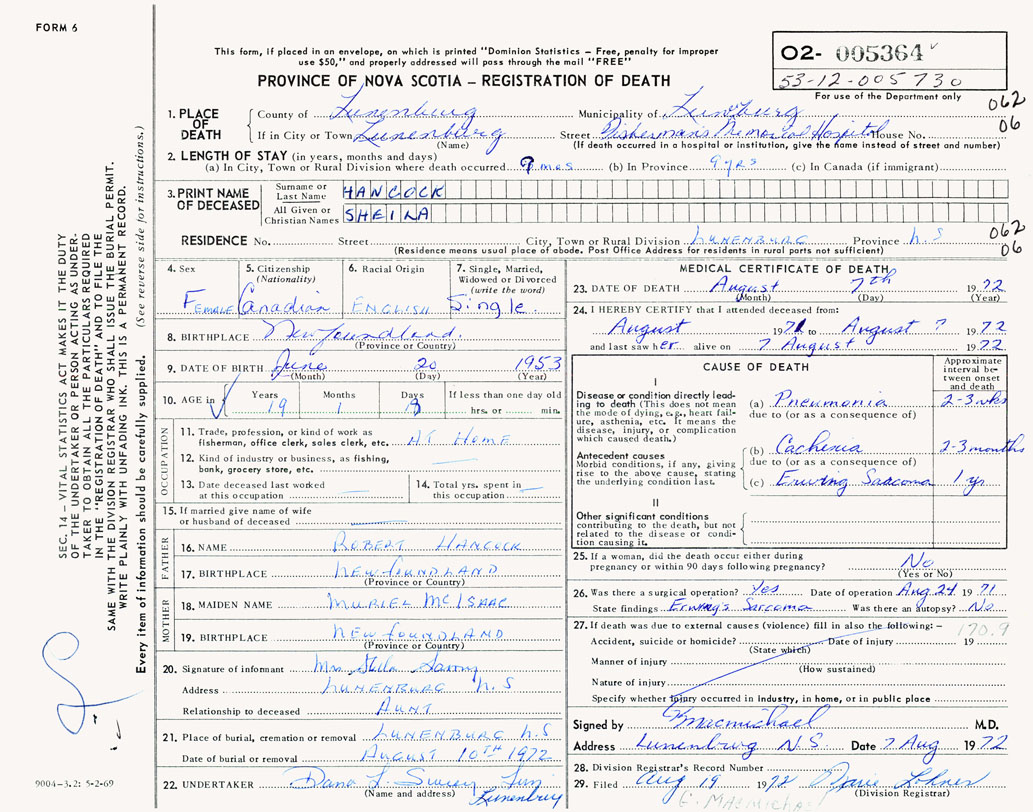 FORM 6
This form, if placed in an envelope, on which is printed "Dominion Statistics – Free, penalty for improper
use $50," and properly addressed will pass through the mail "FREE"
PROVINCE OF NOVA SCOTIA – REGISTRATION OF DEATH
02- 005364
53-12-005730
For use of the Department only
062
06
1. PLACE OF DEATH
County of Lunenburg Municipality of Lunenburg
If in City or Town Lunenburg Street Fisherman's Memorial Hospital House No.
(Name) (If death occurred in a hospital or institution, give the home instead of street and number)
2. LENGTH OF STAY (in years, months and days)
(a) In City, Town or Rural Division where death occurred 9 mos (b) In Province 9 yrs (c) In Canada (if immigrant)
3. PRINT NAME OF DECEASED
Surname or Last Name HANCOCK
All Given or Christian Names SHEILA
RESIDENCE No. Street City, Town or Rural Division LUNENBURG Province N.S
(Residence means usual place of abode. Post Office Address for residents in rural parts not sufficient)
062
06
4. Sex
Female
5. Citizenship
(Nationality)
Canadian
6. Racial Origin
ENGLISH
7. Single, Married,
Widowed or Divorced
(write the word)
Single.
8. BIRTHPLACE Newfoundland.
(Province or Country)
9. DATE OF BIRTH June 20 1953
(Month) (Day) (Year)
10. AGE in
Years Months Days If less than one day old
19 1 18 hrs. or min.
OCCUPATION
11. Trade, profession, or kind of work as
fisherman, office clerk, sales clerk, etc. AT HOME
12. Kind of industry or business, as fishing,
bank, grocery store, etc.
13. Date deceased last worked
at this occupation
14. Total yrs. spent in
this occupation
15. If married give name of wife
or husband of deceased
FATHER
16. NAME ROBERT HANCOCK
17. BIRTHPLACE NEWFOUNDLAND
(Province or Country)
MOTHER
18. MAIDEN NAME MURIEL McISAAC
19. BIRTHPLACE NEWFOUNDLAND
(Province or Country)
20. Signature of informant Mrs
Address LUNENBURG N.S
Relationship to deceased AUNT
21. Place of burial, cremation or removal LUNENBURG N.S
Date of burial or removal AUGUST 10TH 1972
22. UNDERTAKER Dana L Sweeny
(Name and address) Lunenburg
MEDICAL CERTIFICATE OF DEATH
23. DATE OF DEATH August 7th 1972
(Month) (Day) (Year)
24. I HEREBY CERTIFY that I attended deceased from:
August 1971 to August 7 1972
and last saw her alive on 7 August 1972
CAUSE OF DEATH
Approximate
interval be-
tween onset
and death
I
Disease or condition directly lead-
ing to death (This does not mean
the mode of dying, e.g., heart fail-
ure, asthenia, etc. It means the
disease, injury, or complication
which caused death.)
(a) Pneumonia 2-3 wks
due to (or as a consequence of)
Antecedent causes
Morbid conditions, if any, giving
rise to the above cause, stating
the underlying condition last.
(b) Cachexia 2-3 months
due to (or as a consequence of)
(c) Erwing Sarcoma 1 yr
II
Other significant conditions
contributing to the death, but not
related to the disease or condi-
tion causing it.
25. If a woman, did the death occur either during
pregnancy or within 90 days following pregnancy? No
(Yes or No)
26. Was there a surgical operation? Yes Date of operation Aug 24 1971
State findings Erwing's Sarcoma Was there an autopsy? No
27. If death was due to external causes (violence) fill in also the following: –
170.9
Accident, suicide or homicide? Date of injury 19
(State which)
Manner of injury
(How sustained)
Nature of injury
Specify whether injury occurred in industry, in home, or in public place
Signed by Macmichael M.D.
Address Lunenburg N.S. Date 7 Aug 1972
28. Division Registrar's Record Number
29. Filed Aug 19 1972
(Division Registrar)
E. MacMichael
SEC. 14 – VITAL STATISTICS ACT MAKES IT THE DUTY
OF THE UNDERTAKER OR PERSON ACTING AS UNDER-
TAKER TO OBTAIN ALL THE PARTICULARS REQUIRED
IN THE "REGISTRATION OF DEATH" AND TO FILE THE
SAME WITH THE DIVISION REGISTRAR WHO SHALL ISSUE THE BURIAL PERMIT.
WRITE PLAINLY WITH UNFADING INK. THIS IS A PERMANENT RECORD.
Every item of information should be carefully supplied. (See reverse side for instructions.)
9004–3.2: 5-2-69